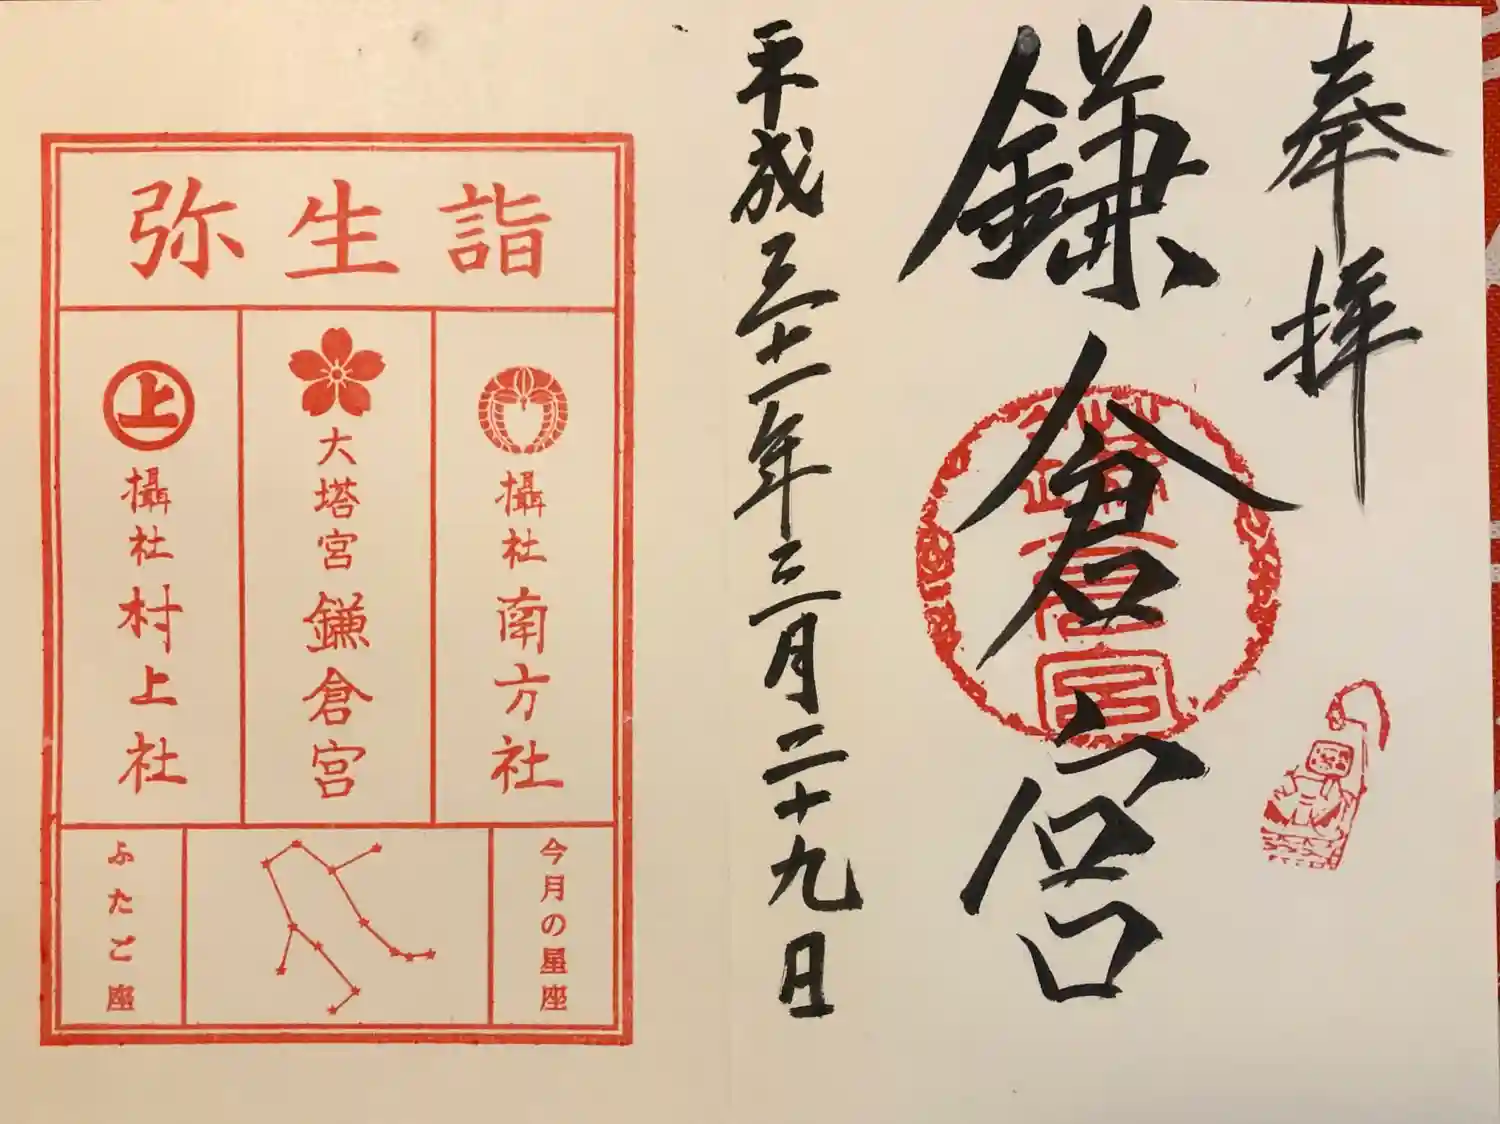 奉拝
鎌倉宮
平成三十一年三月二十九日
弥生詣
攝社 南方社
大塔宮 鎌倉宮
上
攝社 村上社
今月の星座
ふたご座